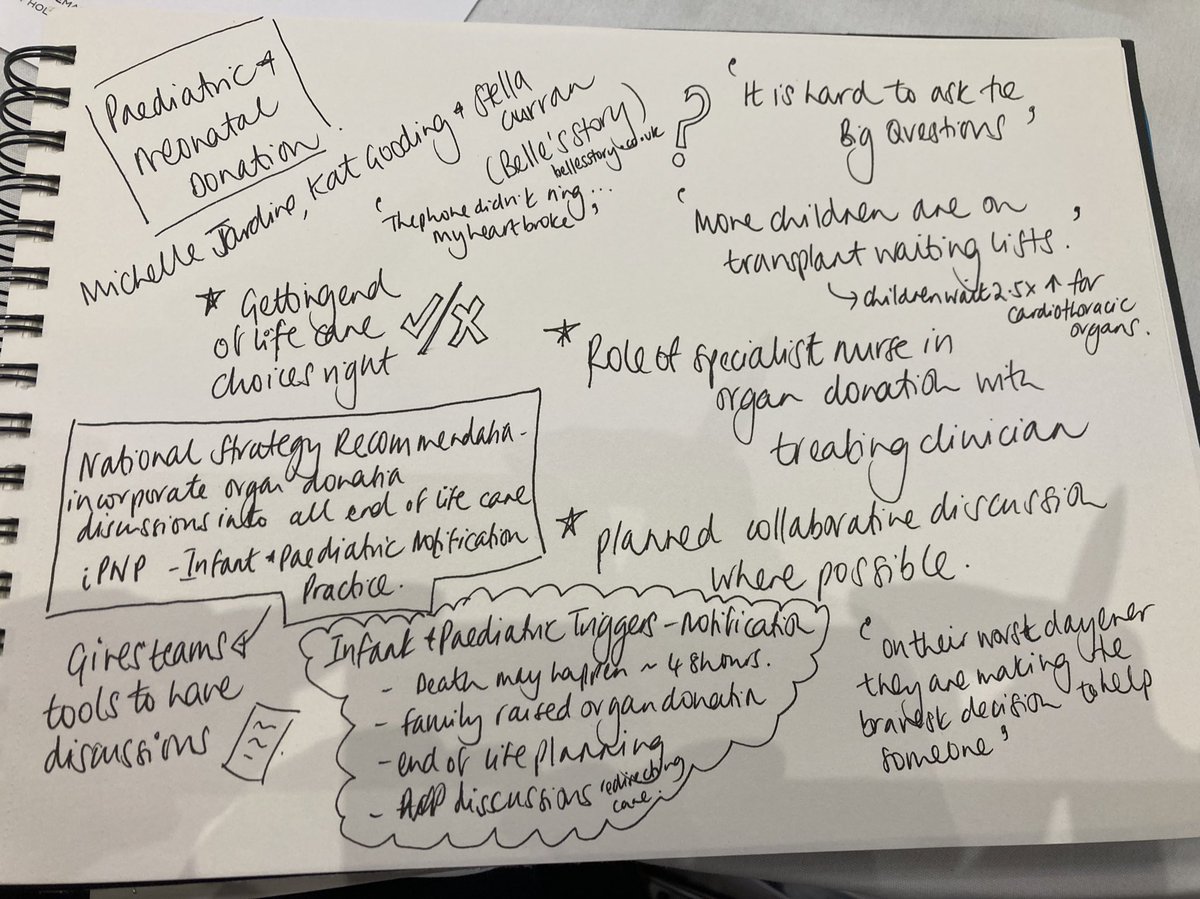 Paediatric +
Neonatal
Donation.
Michelle Jardine, Kat Gooding + Stella
Curran
(Belle's story)
bellesstory.co.uk
'The phone didn't ring...
my heart broke'
?
'It is hard to ask the
Big Questions'
'More children are on
transplant waiting lists.'
↳ children wait 2.5x ↑ for
cardiothoracic
organs.
★ Getting end
of life care
choices right
✓/X
★ Role of specialist nurse in
organ donation with
treating clinician
National Strategy Recommendatia-
incorporate organ donatia
discussions into all end of life care
iPNP - Infant + Paediatric Notification
Practice.
★ planned collaborative discussion
where possible.
Gives teams
tools to have
discussions
Infant + Paediatric Triggers - Notification
- Death may happen ~ 48hours.
- family raised organ donatia
- end of life planning
- discussions redirecting
care.
'on their worst day ever
they are making the
bravest decision to help
someone'